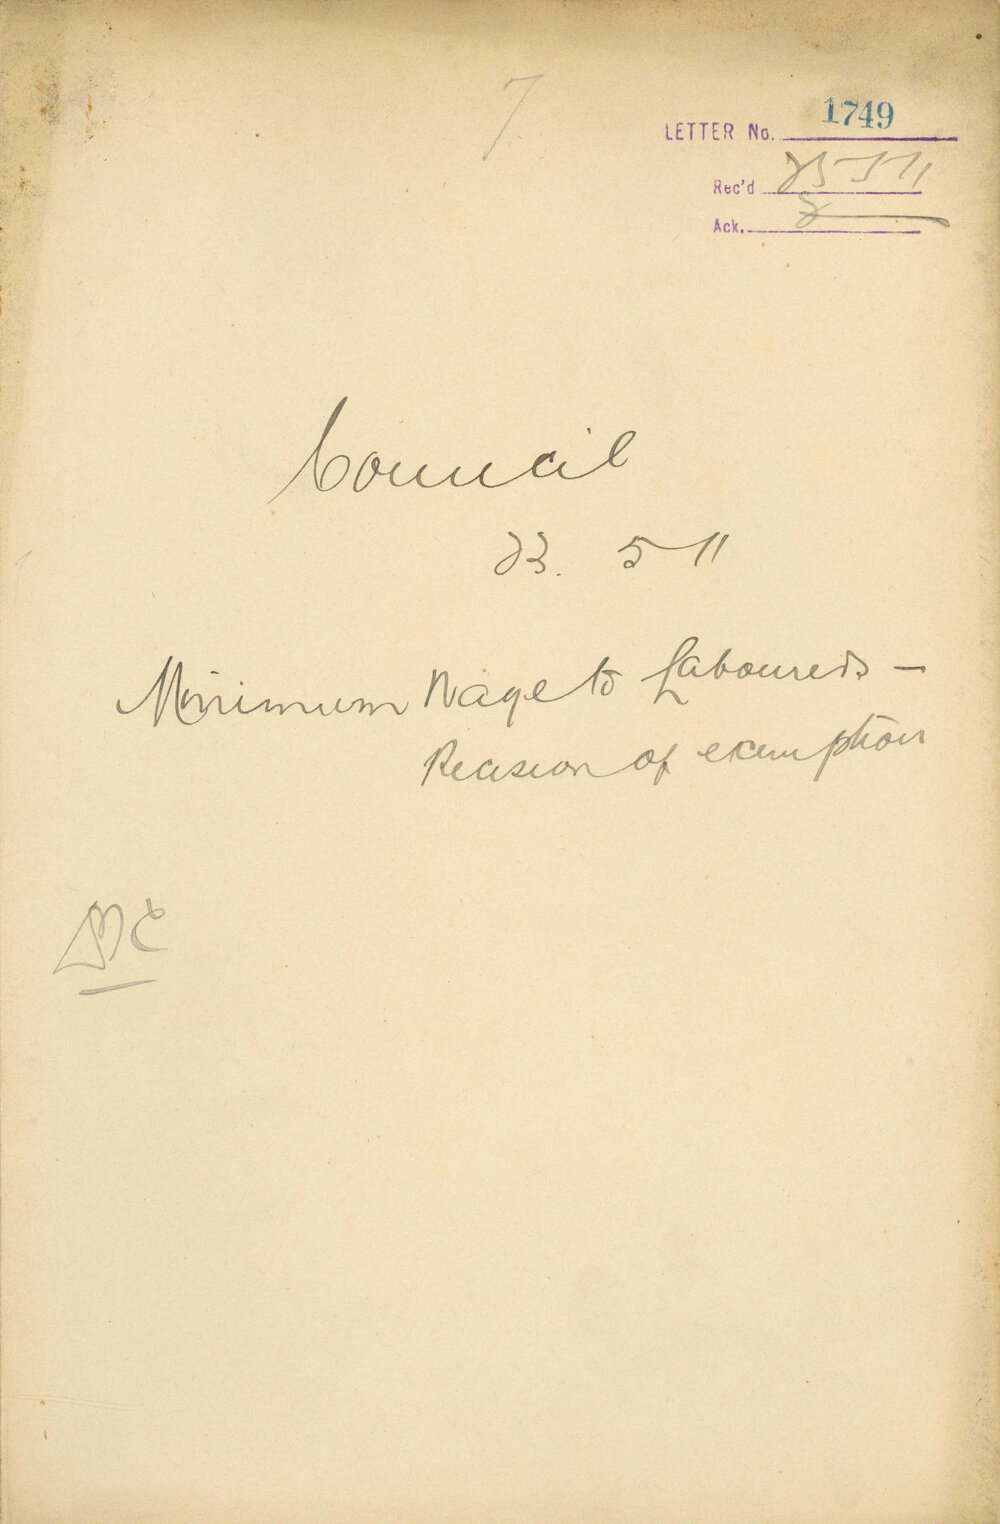 7
LETTER No. 1749
Rec'd 25 5 11
Ack.
Council
23. 5 11
Minimum Wage to Labourers —
Reason of exemption